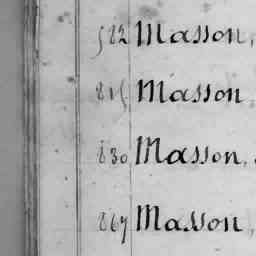 582 Masson,
815 Masson,
830 Masson,
867 Masson,